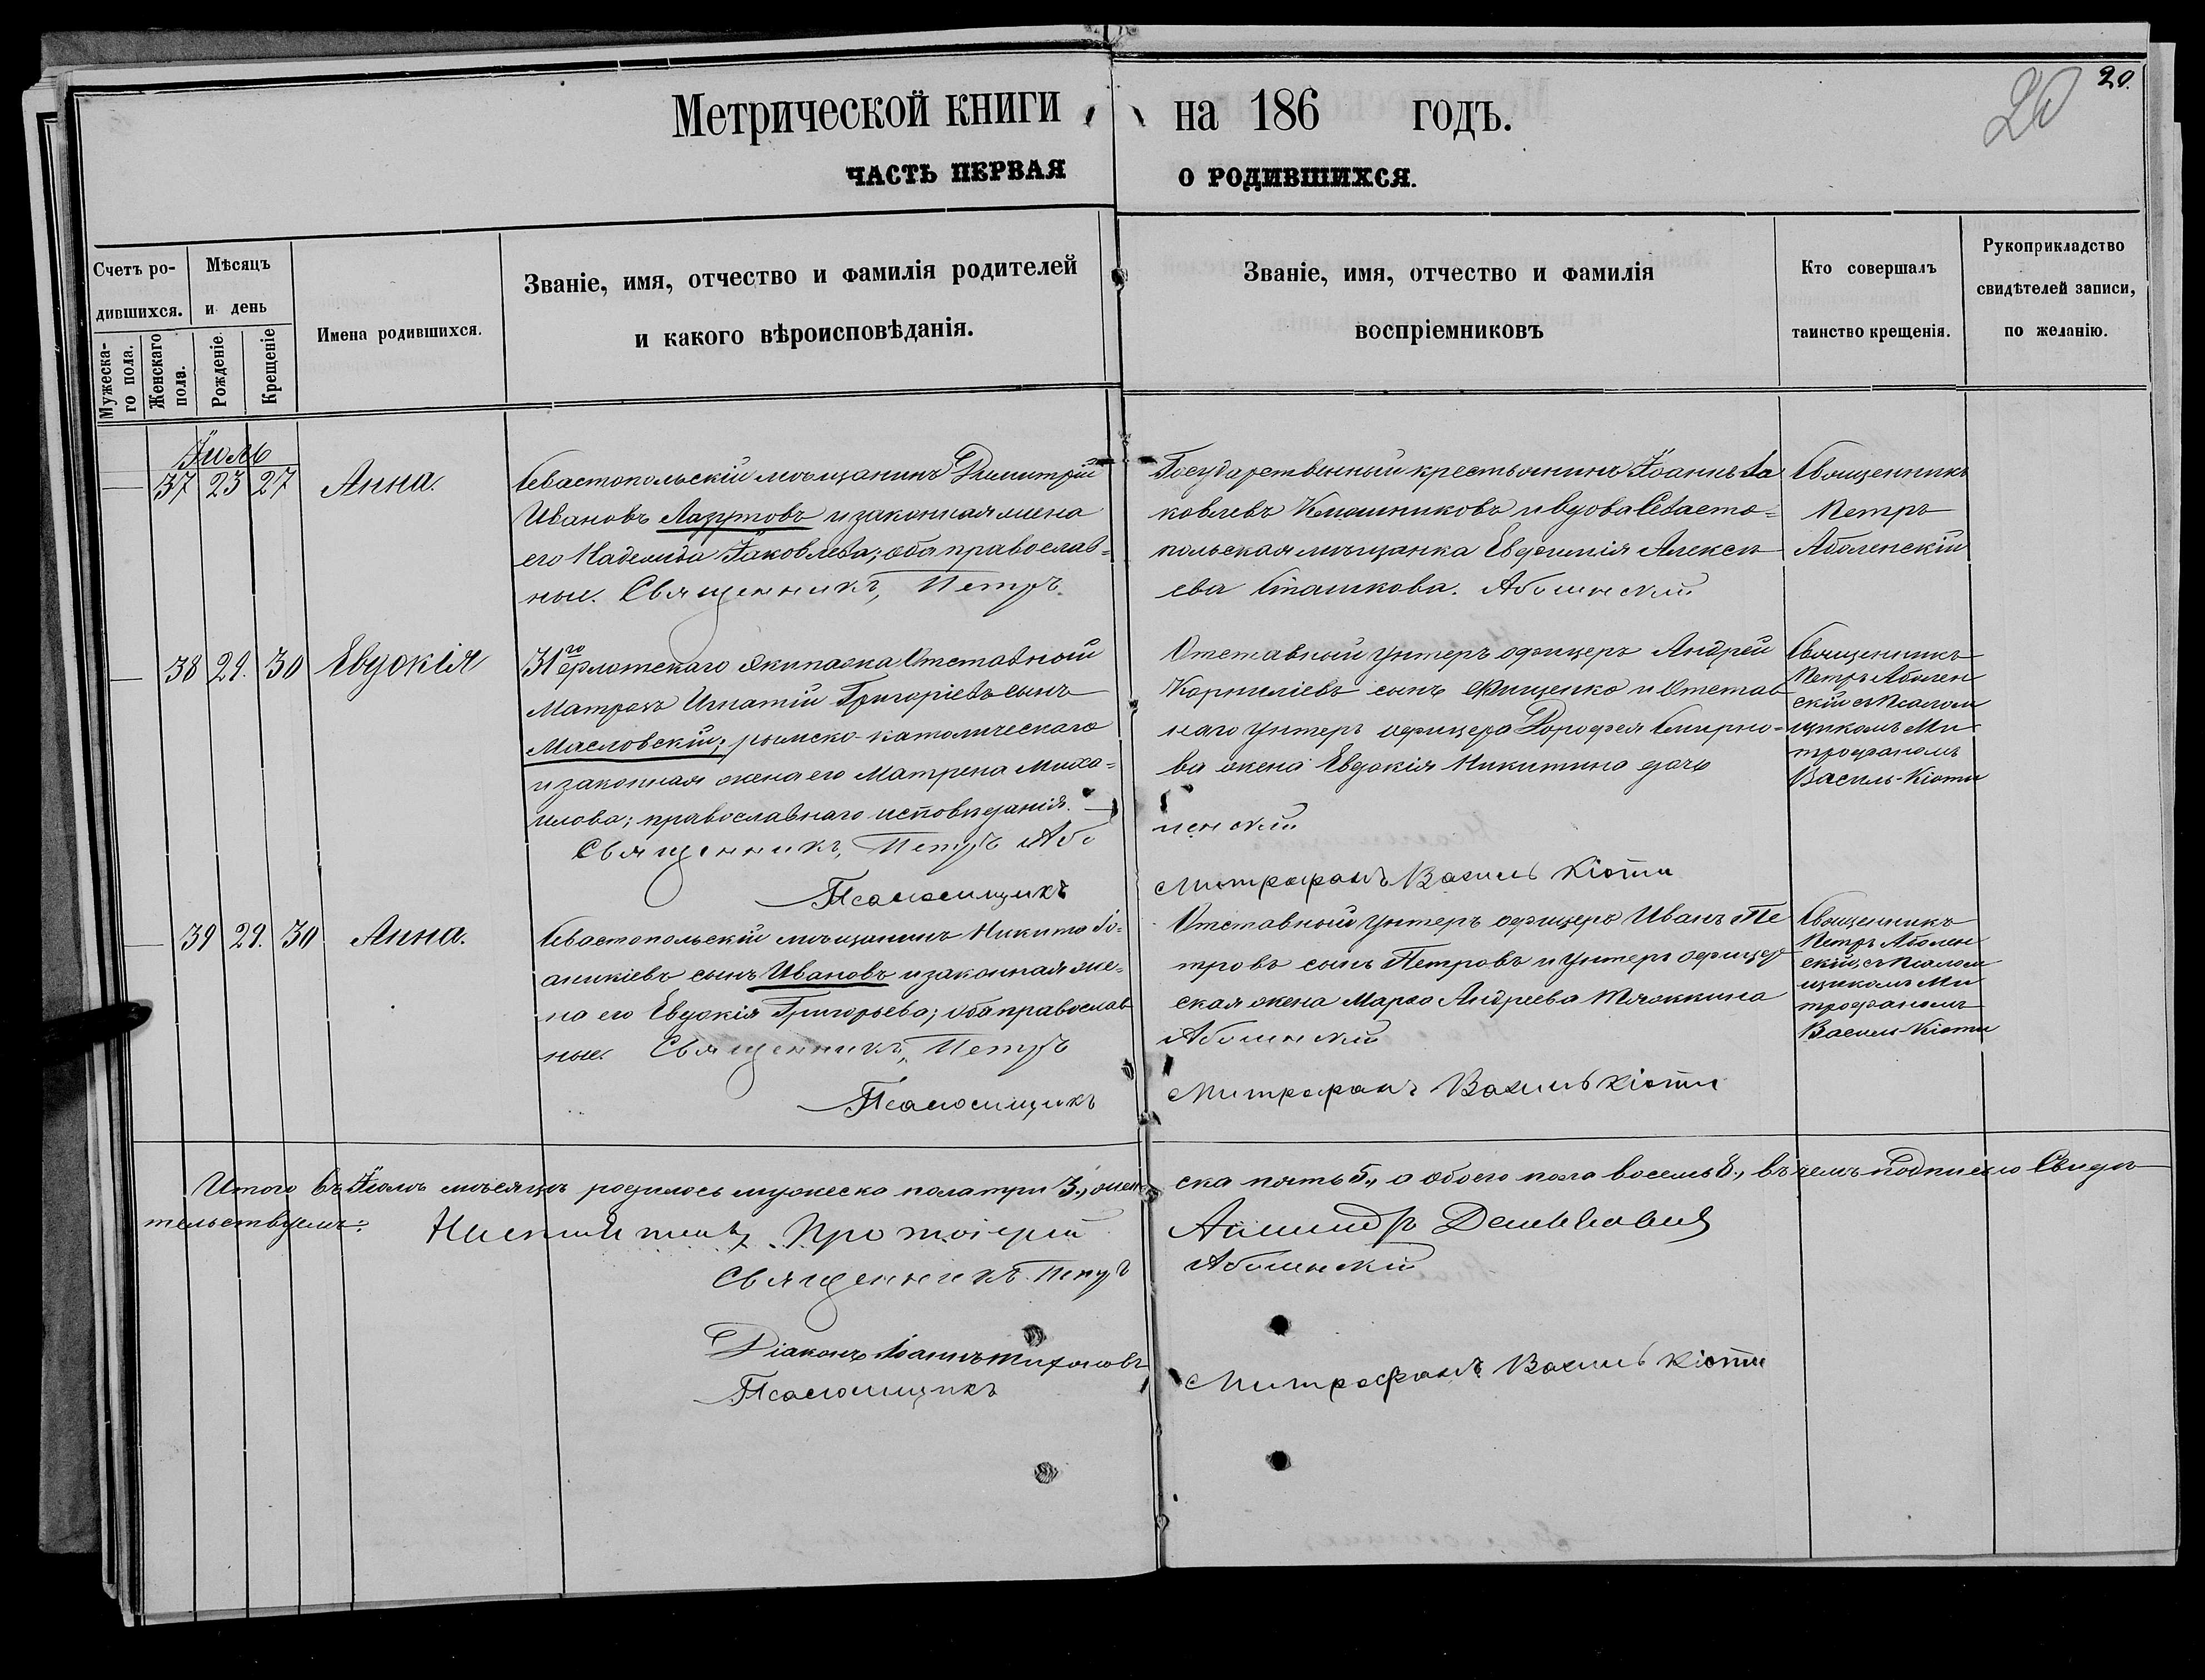 20.
20
Метрической книги на 186 годъ.
ЧАСТЬ ПЕРВАЯ О РОДИВШИХСЯ.
Счетъ ро-
дившихся.
Мужеска-
го пола.
Женскаго
пола.
Мѣсяцъ
и день
Рожденіе.
Крещеніе
Имена родившихся.
Званіе, имя, отчество и фамилія родителей
и какого вѣроисповѣданія.
Званіе, имя, отчество и фамилія
воспріемниковъ
Кто совершалъ
таинство крещенія.
Рукоприкладство
свидѣтелей записи,
по желанію.
Іюль
37 23 27 Анна.
Севастопольскій мѣщанинъ Димитрій
Ивановъ Лазутовъ и законная жена
его Надежда Іаковлева; оба православ-
ные. Священникъ, Петръ
Государственный крестьянинъ Іоаннъ Іа
ковлевъ и вдова Севасто-
польская мѣщанка Евфимія Алексѣ
ева Сташкова. Аболенскій
Священникъ
Петръ
Аболенскій
38 29. 30 Евдокія
31го флотскаго экипажа Отставной
Матросъ Игнатій Григоріевъ сынъ
Масловскій; римско-католическаго
и законная жена его Матрена Миха-
илова; православнаго исповѣданія.
Священникъ, Петръ Або
Псаломщикъ
Отставной унтеръ офицеръ Андрей
Корниліевъ сынъ Фищенко и Отстав
наго унтеръ офицера Дорофея Смирно-
ва жена Евдокія Никитина дочь
ленскій
Митрофанъ Василь Кіоти
Священникъ
Петръ Аболен
скій съ Псалом
щикомъ Ми
трофаномъ
Василь-Кіоти
39 29. 30 Анна.
Севастопольскій мѣщанинъ Никита Іо-
аникіевъ сынъ Ивановъ и законная же-
на его Евдокія Григорьева; оба православ
ные. Священникъ, Петръ
Псаломщикъ
Отставной унтеръ офицеръ Иванъ Пе
тровъ сынъ Петровъ и унтеръ офицер
ская жена Марфа Андреева Тяжкина
Аболенскій
Митрофанъ Василькіоти
Священникъ
Петръ Аболен
скій, съ Псалом
щикомъ Ми
трофаномъ
Василь-Кіоти
Итого въ Іюлѣ мѣсяцѣ родилось мужеска пола три 3., жен ска пять 5., а обоего пола восемь 8., въ чемъ подписью Свидѣ
тельствуемъ:
Протоіерей
Священникъ Петръ Аболенскій
Діаконъ Іоаннъ Тихоновъ
Псаломщикъ Митрофанъ Василькіоти